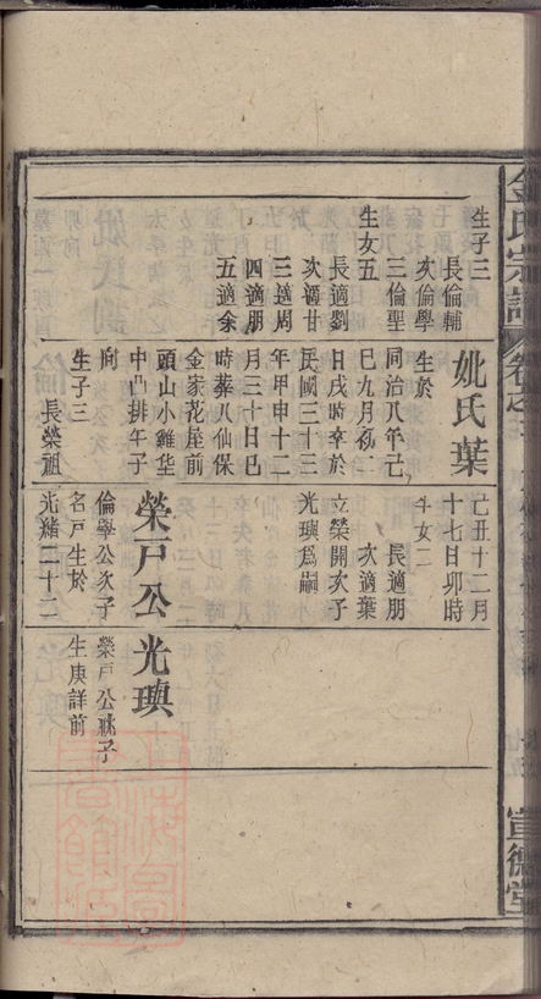 金氏宗譜
宣德堂
生子三
長倫輔
次倫學
三倫聖
生女五
長適劉
次適甘
三適周
四適朋
五適余
妣氏葉
生於
同治八年己
巳九月初二
日戌時卒於
民國三十三
年甲申十二
月三十日巳
時葬八仙保
金家花屋前
頭山小雞垡
中凸排午子
向
生子三
長榮祖
己丑十二月
十七日卯時
生女二
長適朋
次適葉
立榮開次子
光璵爲嗣
榮戸公
倫學公次子
名戸生於
光緒二十二
光璵
榮戸公祧子
生庚詳前
上海圖書館藏